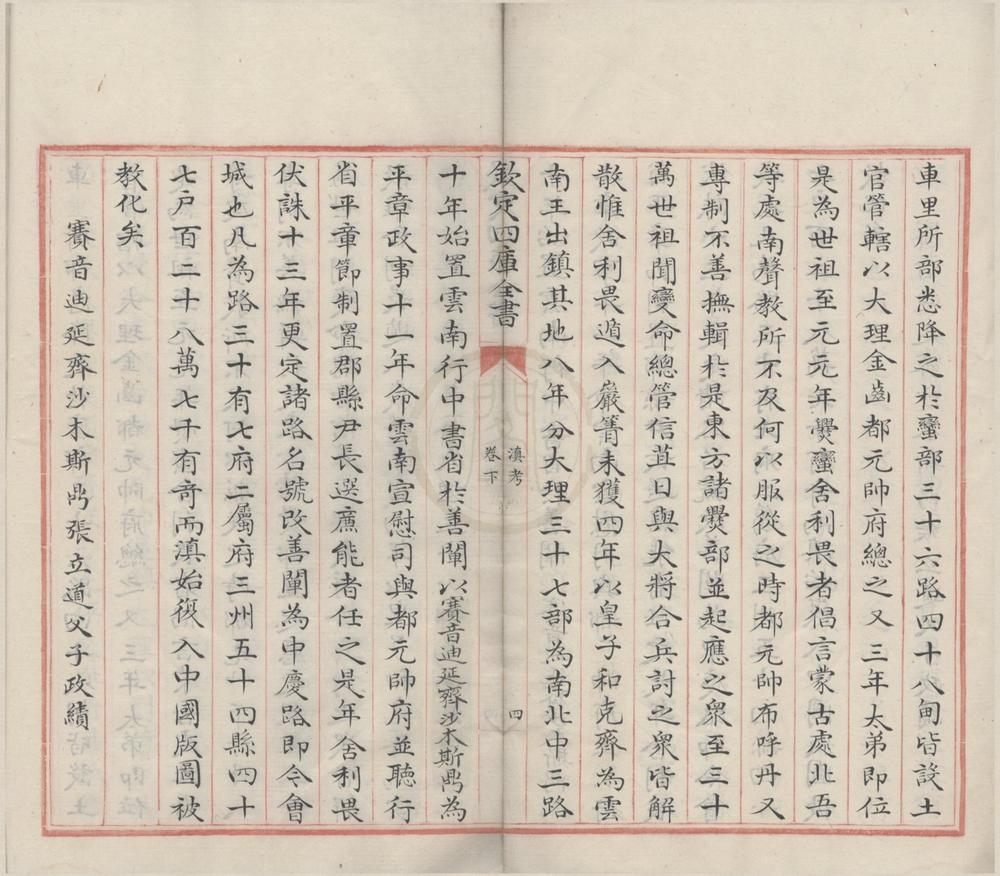 車里所部悉降之於蠻部三十六路四十八甸皆設土
官管轄以大理金齒都元帥府總之又三年太弟即位
是為世祖至元元年㸑蠻舍利畏者倡言蒙古處北吾
等處南聲教所不及何以服從之時都元帥布呼丹又
專制不善撫輯於是東方諸㸑部並起應之衆至三十
萬世祖聞變命總管信苴日與大將合兵討之衆皆解
散惟舍利畏遁入巖箐未獲四年以皇子和克齊為雲
南王出鎮其地八年分大理三十七部為南北中三路
欽定四庫全書
滇考
卷下
四
十年始置雲南行中書省於善闡以賽音迪延齊沙木斯鼎為
平章政事十一年命雲南宣慰司與都元帥府並聽行
省平章節制置郡縣尹長選廉能者任之是年舍利畏
伏誅十三年更定諸路名號改善闡為中慶路即今會
城也凡為路三十有七府二屬府三州五十四縣四十
七戶百二十八萬七千有奇而滇始復入中國版圖被
教化矣
賽音迪延齊沙木斯鼎張立道父子政績